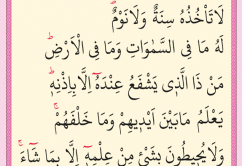 لَا تَأْخُذُهُ سِنَةٌ وَلَا نَوْمٌ ۚ
لَهُ مَا فِى السَّمٰوَاتِ وَمَا فِى الْاَرْضِ ۜ
مَنْ ذَا الَّذٖى يَشْفَعُ عِنْدَهُٓ اِلَّا بِاِذْنِهٖ ۜ
يَعْلَمُ مَا بَيْنَ اَيْدٖيهِمْ وَمَا خَلْفَهُمْ ۚ
وَلَا يُحٖيطُونَ بِشَىْءٍ مِنْ عِلْمِهٖٓ اِلَّا بِمَا شَٓاءَ ۚ